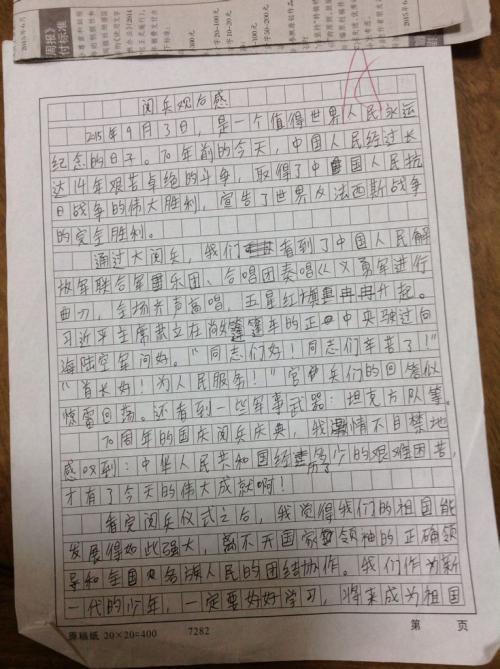 2015年6月
周报》
付标准
2015年6月
100元
字10—20元
字20—100元
字50—200元
100元
A
阅兵观后感
2015年9月3日，是一个值得世界人民永远
纪念的日子。70年前的今天，中国人民经过长
达14年艰苦卓绝的斗争，取得了中国人民抗
日战争的伟大胜利，宣告了世界反法西斯战争
的完全胜利。
通过大阅兵，我们看到了中国人民解
放军联合军乐团、合唱团奏唱《义勇军进行
曲》，全场齐声高唱，五星红旗冉冉升起。
习近平主席肃立在阅篷车的正中央驶过向
海陆空军问好。“同志们好！同志们辛苦了！”
“首长好！为人民服务！”官兵们的回答似
惊雷回荡。还看到一些军事武器：坦克方队等。
70周年的国庆阅兵庆典，我情不自禁地
感叹到：中华人民共和国经历了多少的艰难困苦，
才有了今天的伟大成就啊！
看完阅兵仪式之后，我觉得我们的祖国能
发展得如此强大，离不开国家领袖的正确领
导和全国各族人民的团结协作。我们作为新
一代的少年，一定要好好学习，将来成为祖国
原稿纸 20×20=400 7282 第 页